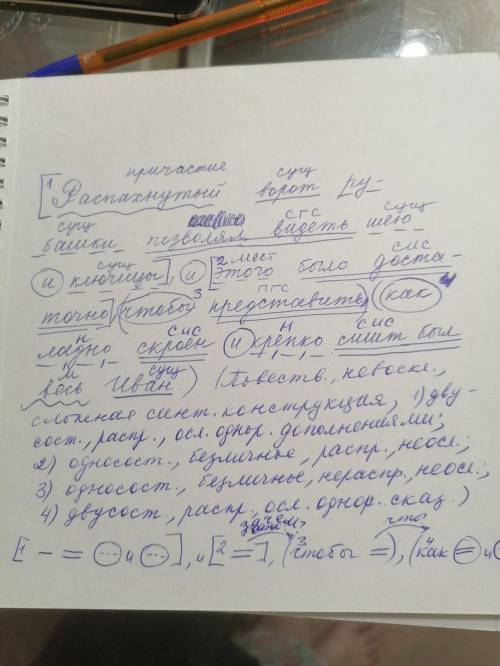 причастие сущ
[1 Распахнутый ворот ру-
сущ сгс сущ
башки позволял видеть шею
сущ 2 мест сис
и ключицы], и [этого было доста-
3 пгс
точно], (чтобы представить), (как
н сис н сис
ладно скроен и крепко сшит был
м сущ
весь Иван.) (Повеств., невоскл.,
сложная синт. конструкция, 1) дву-
сост., распр., осл. однор. дополнениями;
2) односост., безличное, распр., неосл.;
3) односост., безличное, нераспр., неосл.;
4) двусост., распр., осл. однор. сказ.)
зачем? что?
[1 – = и ], и [2 =], (3 чтобы =), (4 как = и